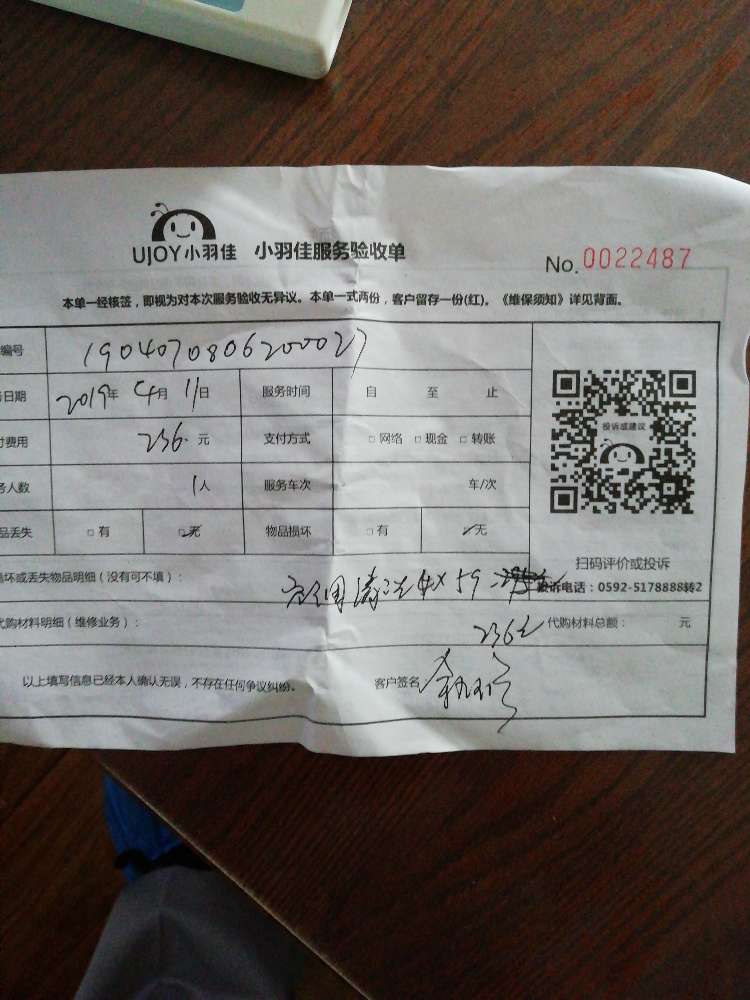 UJOY小羽佳 小羽佳服务验收单
No. 0022487
本单一经核签，即视为对本次服务验收无异议。本单一式两份，客户留存一份(红)。《维保须知》详见背面。
编号 1904070806200027
日期 2019年 4月 11日 服务时间 自 至 止
费用 236. 元 支付方式 □网络 □现金 □转账
人数 1人 服务车次 车/次
品丢失 □有 □无 物品损坏 □有 □无
投诉或建议
扫码评价或投诉
投诉电话：0592-5178888
坏或丢失物品明细（没有可不填）：
洗 4×59
代购材料明细（维修业务）： 236元 代购材料总额： 元
以上填写信息已经本人确认无误，不存在任何争议纠纷。 客户签名